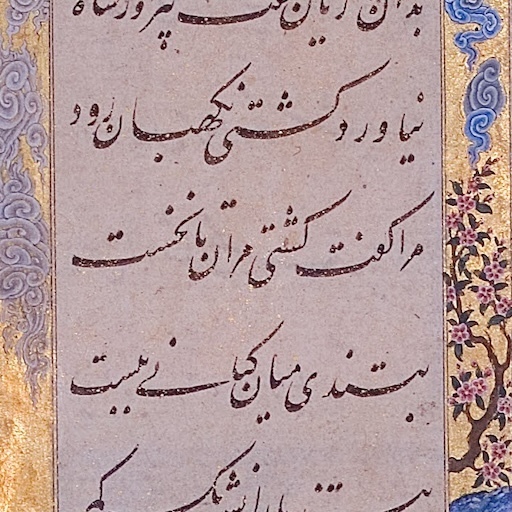 بدان تازیان گفت پیروز شاه
نیاورد کشتی نگهبان رود
مرا گفت کشتی مران تا نخست
بتندی میان کیانی ببست
ببستند یارانش